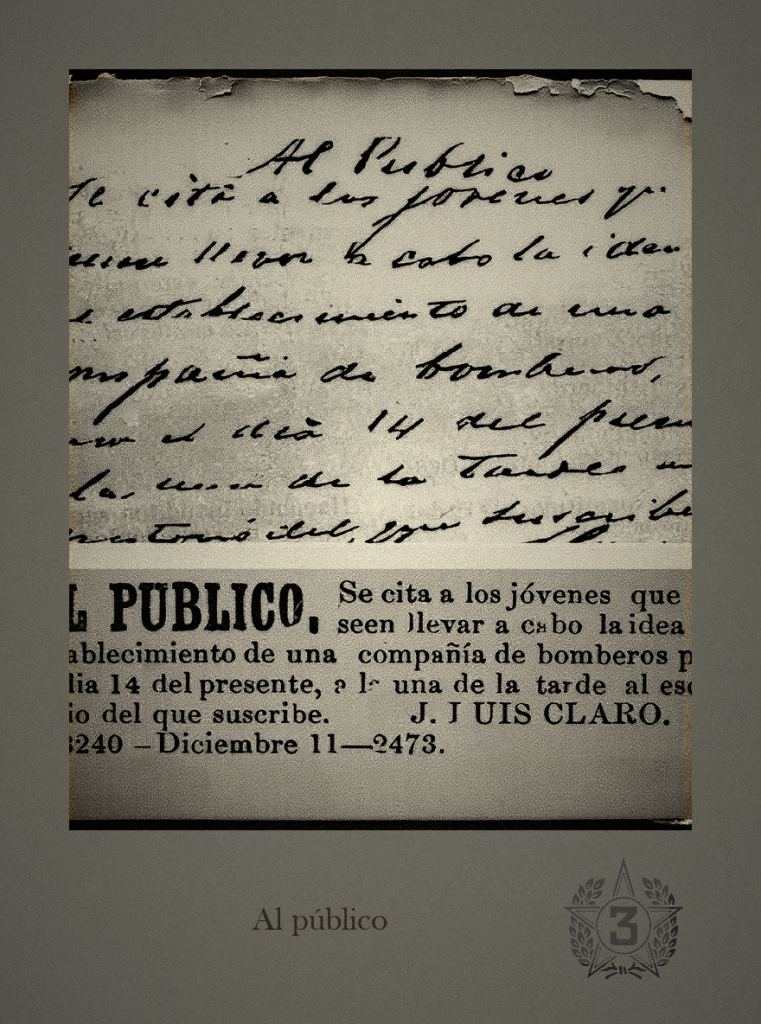 Al Publico
Se cita a los jovenes q.
llevar a cabo la idea
establecimiento de una
mpañia de bomberos,
el dia 14 del prese
la una de la tarde
del que suscribe
L PÚBLICO, Se cita a los jóvenes que
seen llevar a cabo la idea
ablecimiento de una compañía de bomberos p
dia 14 del presente, a la una de la tarde al esc
io del que suscribe. J. LUIS CLARO.
3240 – Diciembre 11—2473.
Al público
3